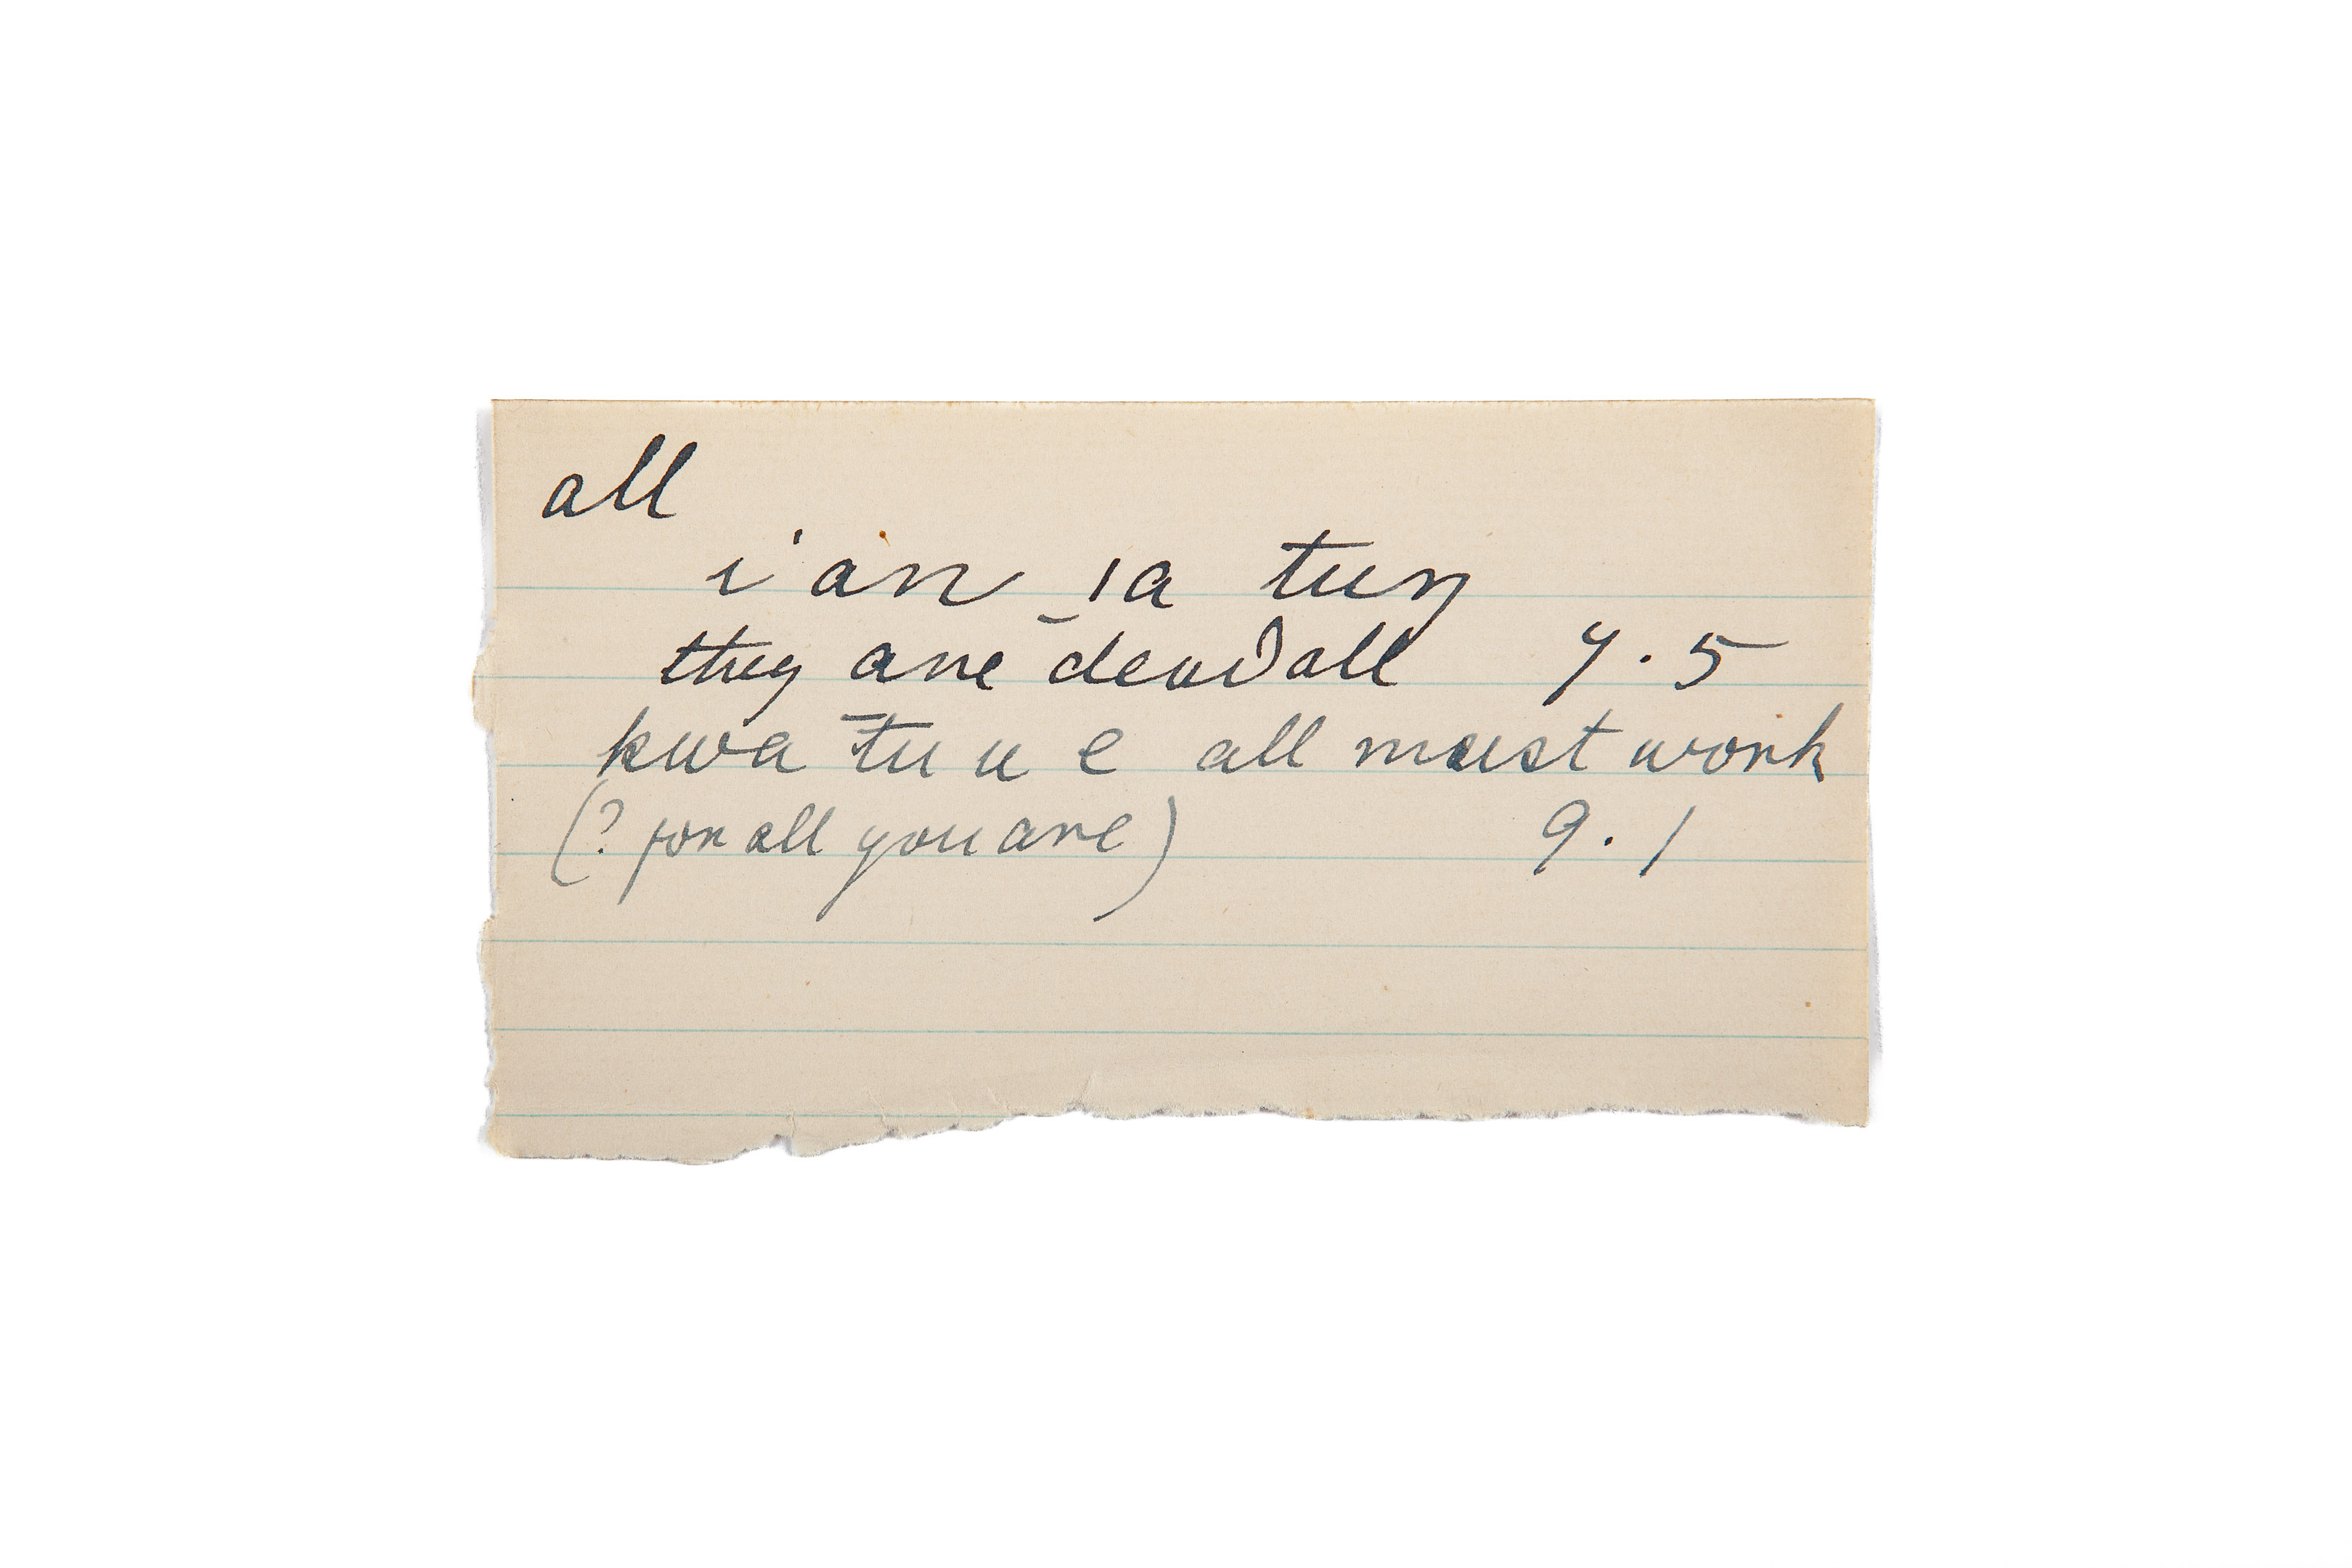 all
i'an_ıa tuŋ
they are dead all 7.5
kwa tu u e all must work
(? for all you are) 9.1